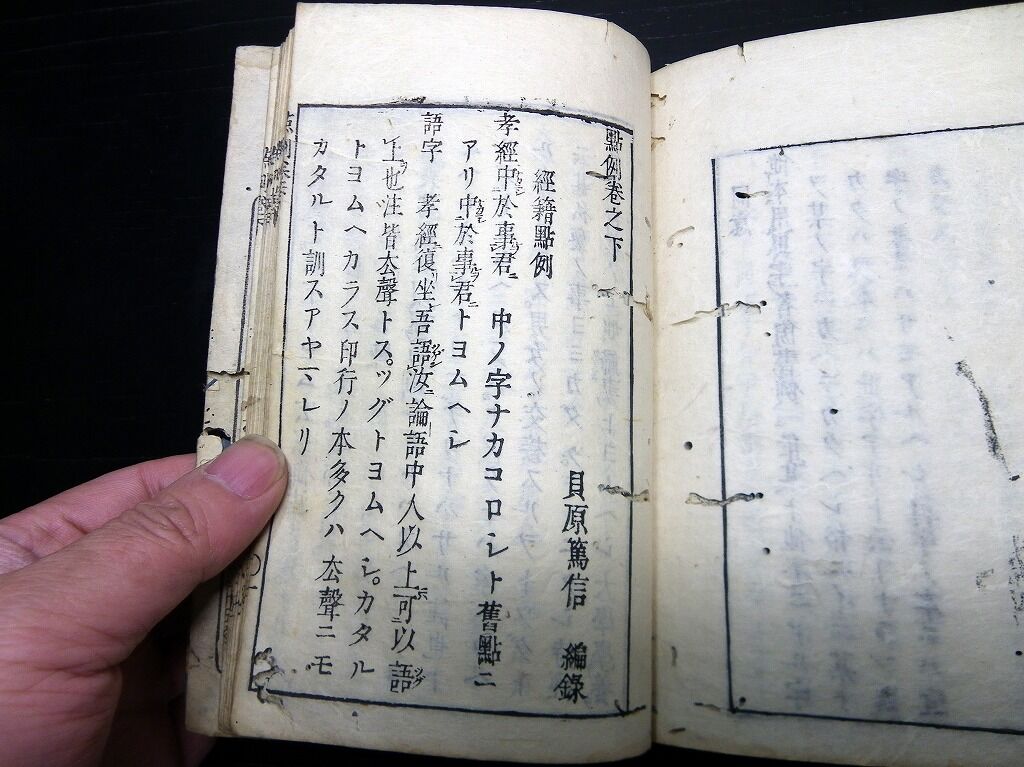 點例卷之下
經籍點例
貝原篤信 編錄
孝經中於事君 中ノ字ナカコロシト舊點ニ
アリ中於事君トヨムヘシ
語字 孝經復坐吾語汝論語中人以上可以語
上也注皆厺聲トス。ツグトヨムヘシ。カタル
トヨムヘカラス印行ノ本多クハ厺聲ニモ
カタルト訓スアヤマレリ